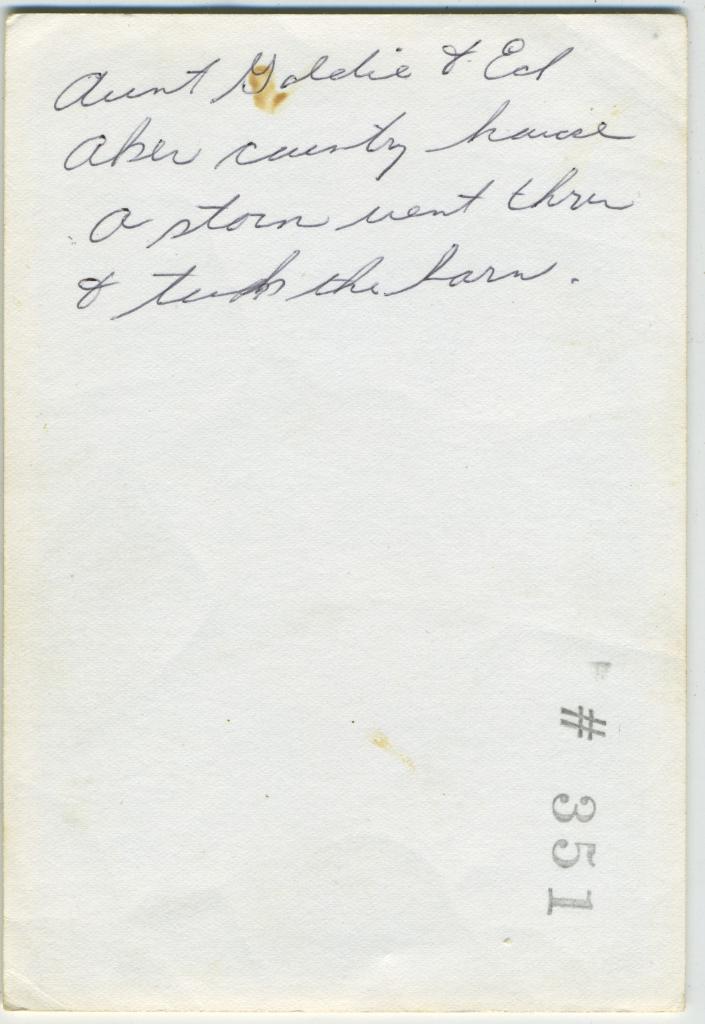 Aunt Goldie & Ed
Aker country house
a storm went thru
& took the barn.
# 351